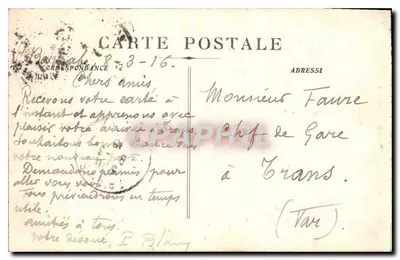 CARTE POSTALE
CORRESPONDANCE
ADRESSE
8-3-16
Chers amis
Recevons votre carte à
l'instant et apprenons avec
plaisir votre
souhaitons
votre
Demandons permis pour
aller vous
vous préviendrons en temps
utile.
amitiés à tous
votre
Monsieur Faure
Chef de Gare
à Trans.
(Var)